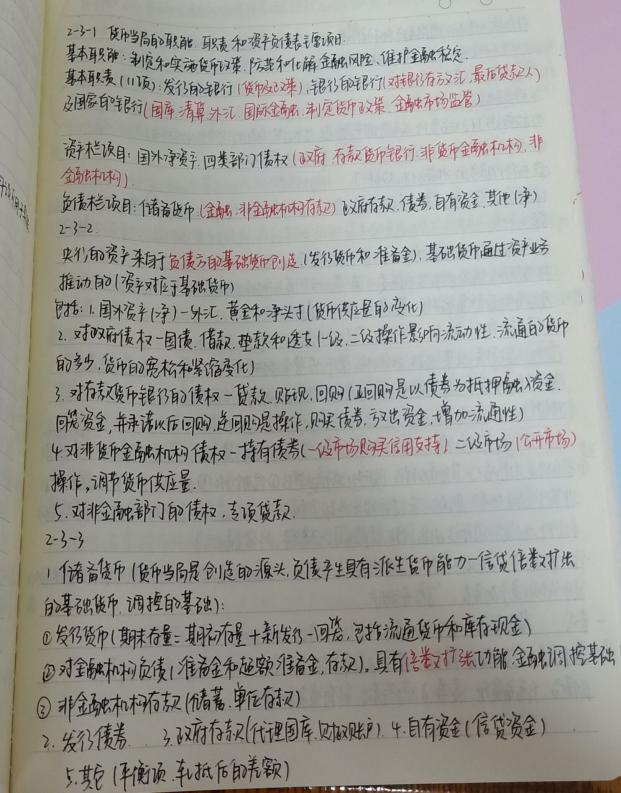 2-3-1 货币当局的职能、职责和资产负债表主要项目.
基本职能:制定和实施货币政策、防范和化解金融风险、维护金融稳定.
基本职责(11项):发行的银行(货币及政策),银行的银行(对银行存方汇、最后贷款人)
及国家的银行(国库、清算、外汇、国际金融、制定货币政策、金融市场监管)
资产栏项目:国外净资产,四类部门债权(政府、存款货币银行、非货币金融机构、非
金融机构).
负债栏项目:储备货币(金融、非金融机构存款)政府存款、债券、自有资金、其他(净)
2-3-2
央行的资产来自于负债方的基础货币创造(发行货币和准备金),基础货币通过资产业务
推动的(资产对应于基础货币)
包括:1.国外资产(净)-外汇、黄金和净头寸(货币供应量的变化)
2.对政府债权-国债、借款、垫款和透支(一级、二级操作影响流动性、流通的货币
的多少,货币的宽松和紧缩变化)
3.对存款货币银行的债权-贷款、贴现、回购(正回购是以债券为抵押融资金.
回笼资金,并承诺以后回购,逆回购是操作,购买债券,放出资金,增加流通性)
4.对非货币金融机构债权-持有债券(一级市场购买信用支持)二级市场(公开市场)
操作,调节货币供应量.
5.对非金融部门的债权、专项贷款.
2-3-3
1.储备货币(货币当局是创造的源头,负债产生具有派生货币能力-信贷倍数扩张
的基础货币、调控的基础):
①发行货币(期末存量=期初存量+新发行-回笼,包括流通货币和库存现金)
②对金融机构负债(准备金和超额准备金、存款),具有倍数扩张功能,金融调控基础
③非金融机构存款(储蓄、单位存款)
2.发行债券 3.政府存款(代理国库、财政账户) 4.自有资金(信贷资金)
5.其它(平衡项、轧抵后的差额)